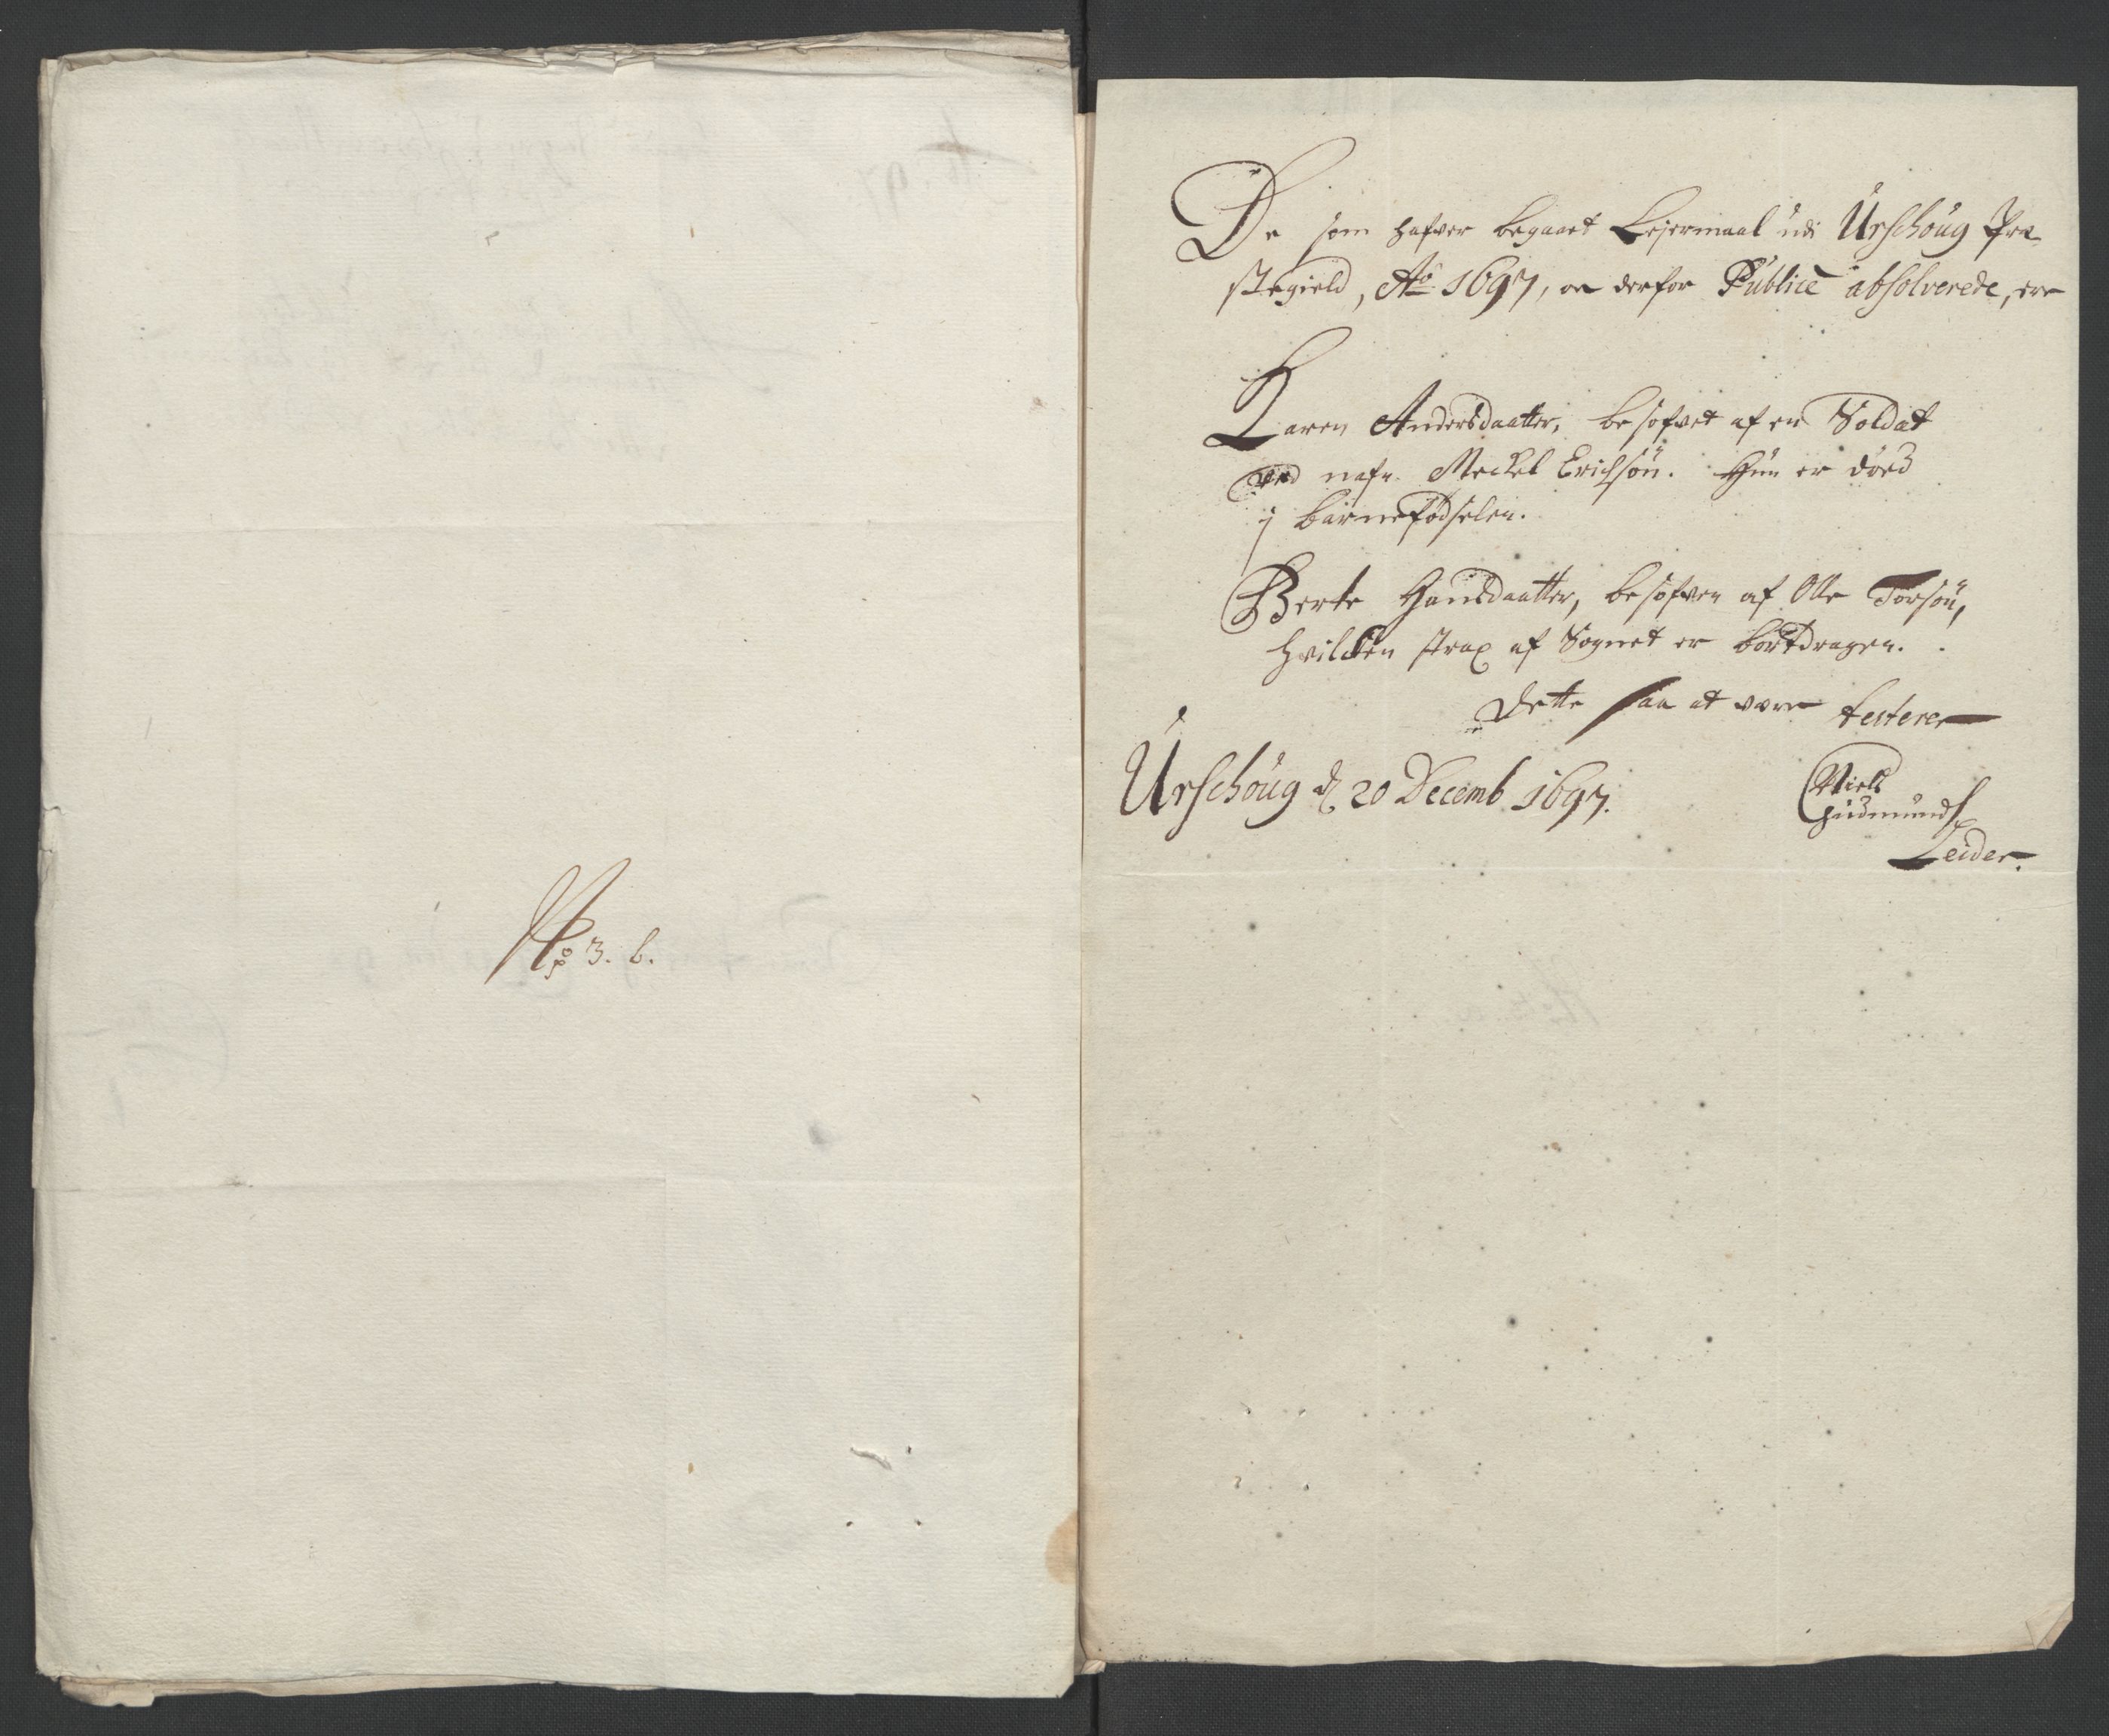 No 3. b.
De som hafver begaaet Lejermaal udi Urschoug Præ-
stegield, Ao 1697, oc derfor Publicè absolverede, ere
Karen Andersdaatter, besofvet af en Soldat
ved nafn Meckel Erichsøn. Hun er døed
j barnefødselen.
Berte Hansdaatter, besofven af Olle Torsøn,
hvilcken strax af Sognet er bortdragen.
Dette saa at være testerer
Urschoug d. 20 Decemb 1697.
Niels
Gudmunds.
Leider.